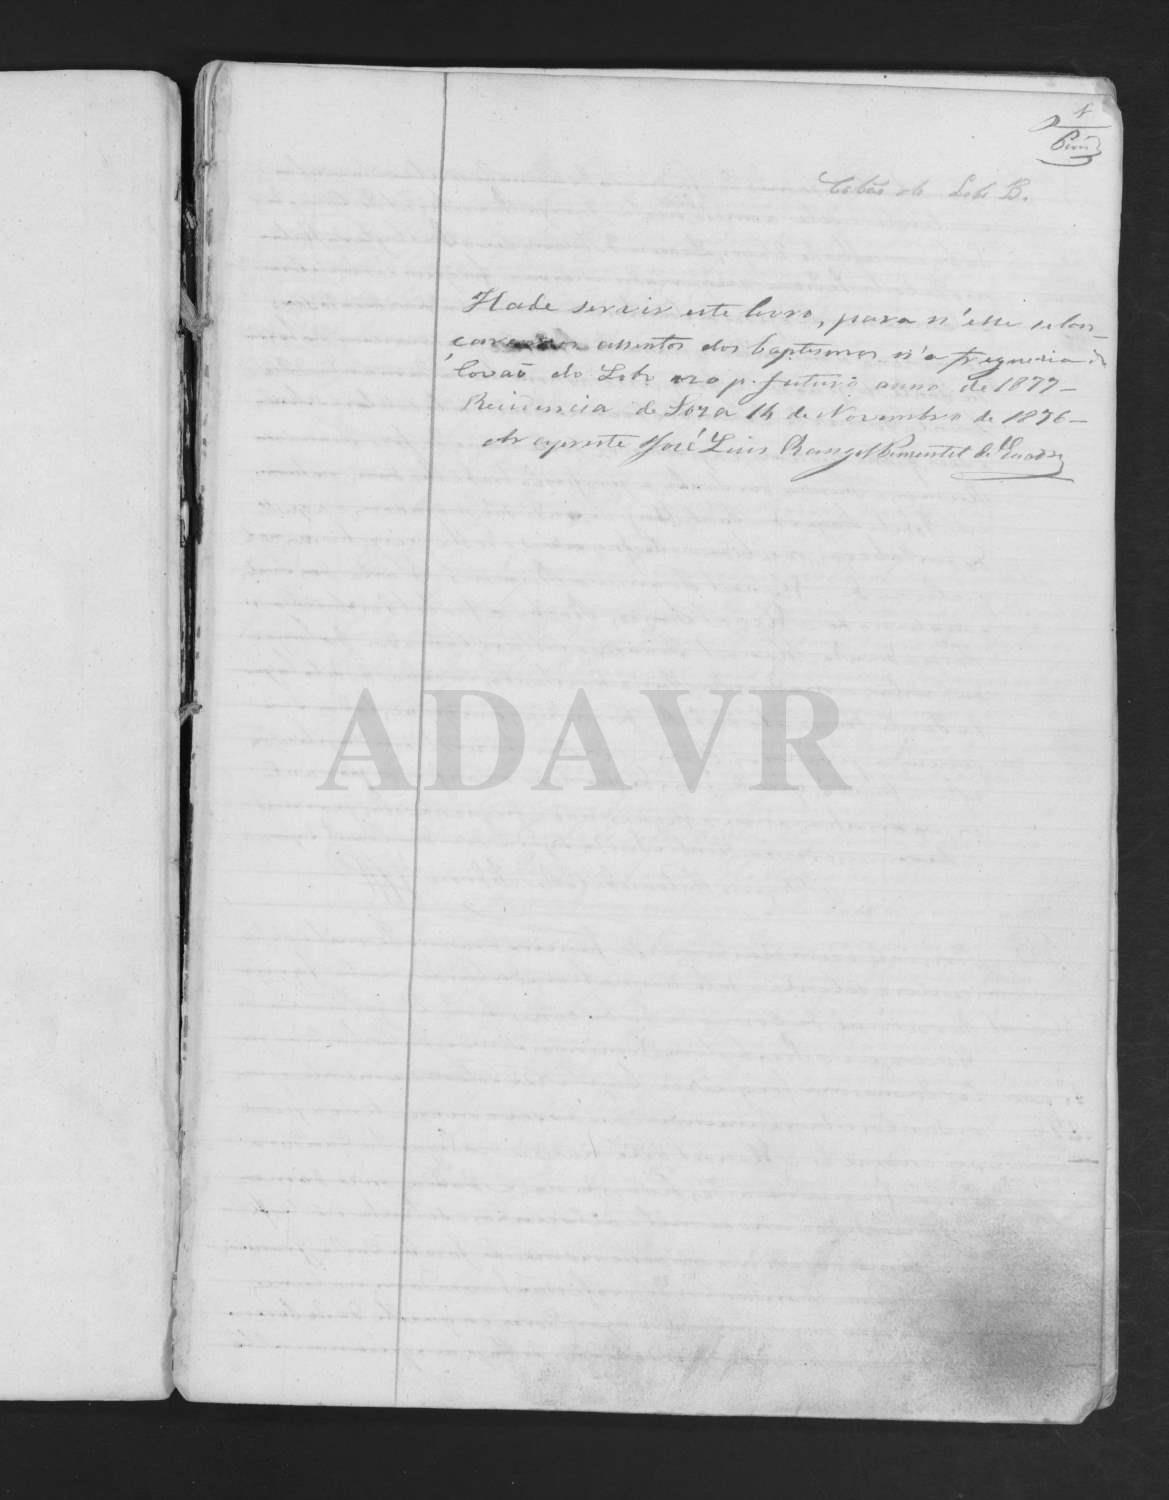 1
Covão do Lobo B.
Hade servir este livro, para n'elle se lan-
çarem os assentos dos baptismos n'a freguesia do
Covão do Lobo no p. futuro anno de 1877 —
Residencia de Soza 14 de Novembro de 1876 —
O Arcypreste José Luis Rangel Pimentel de Quadros
ADAVR